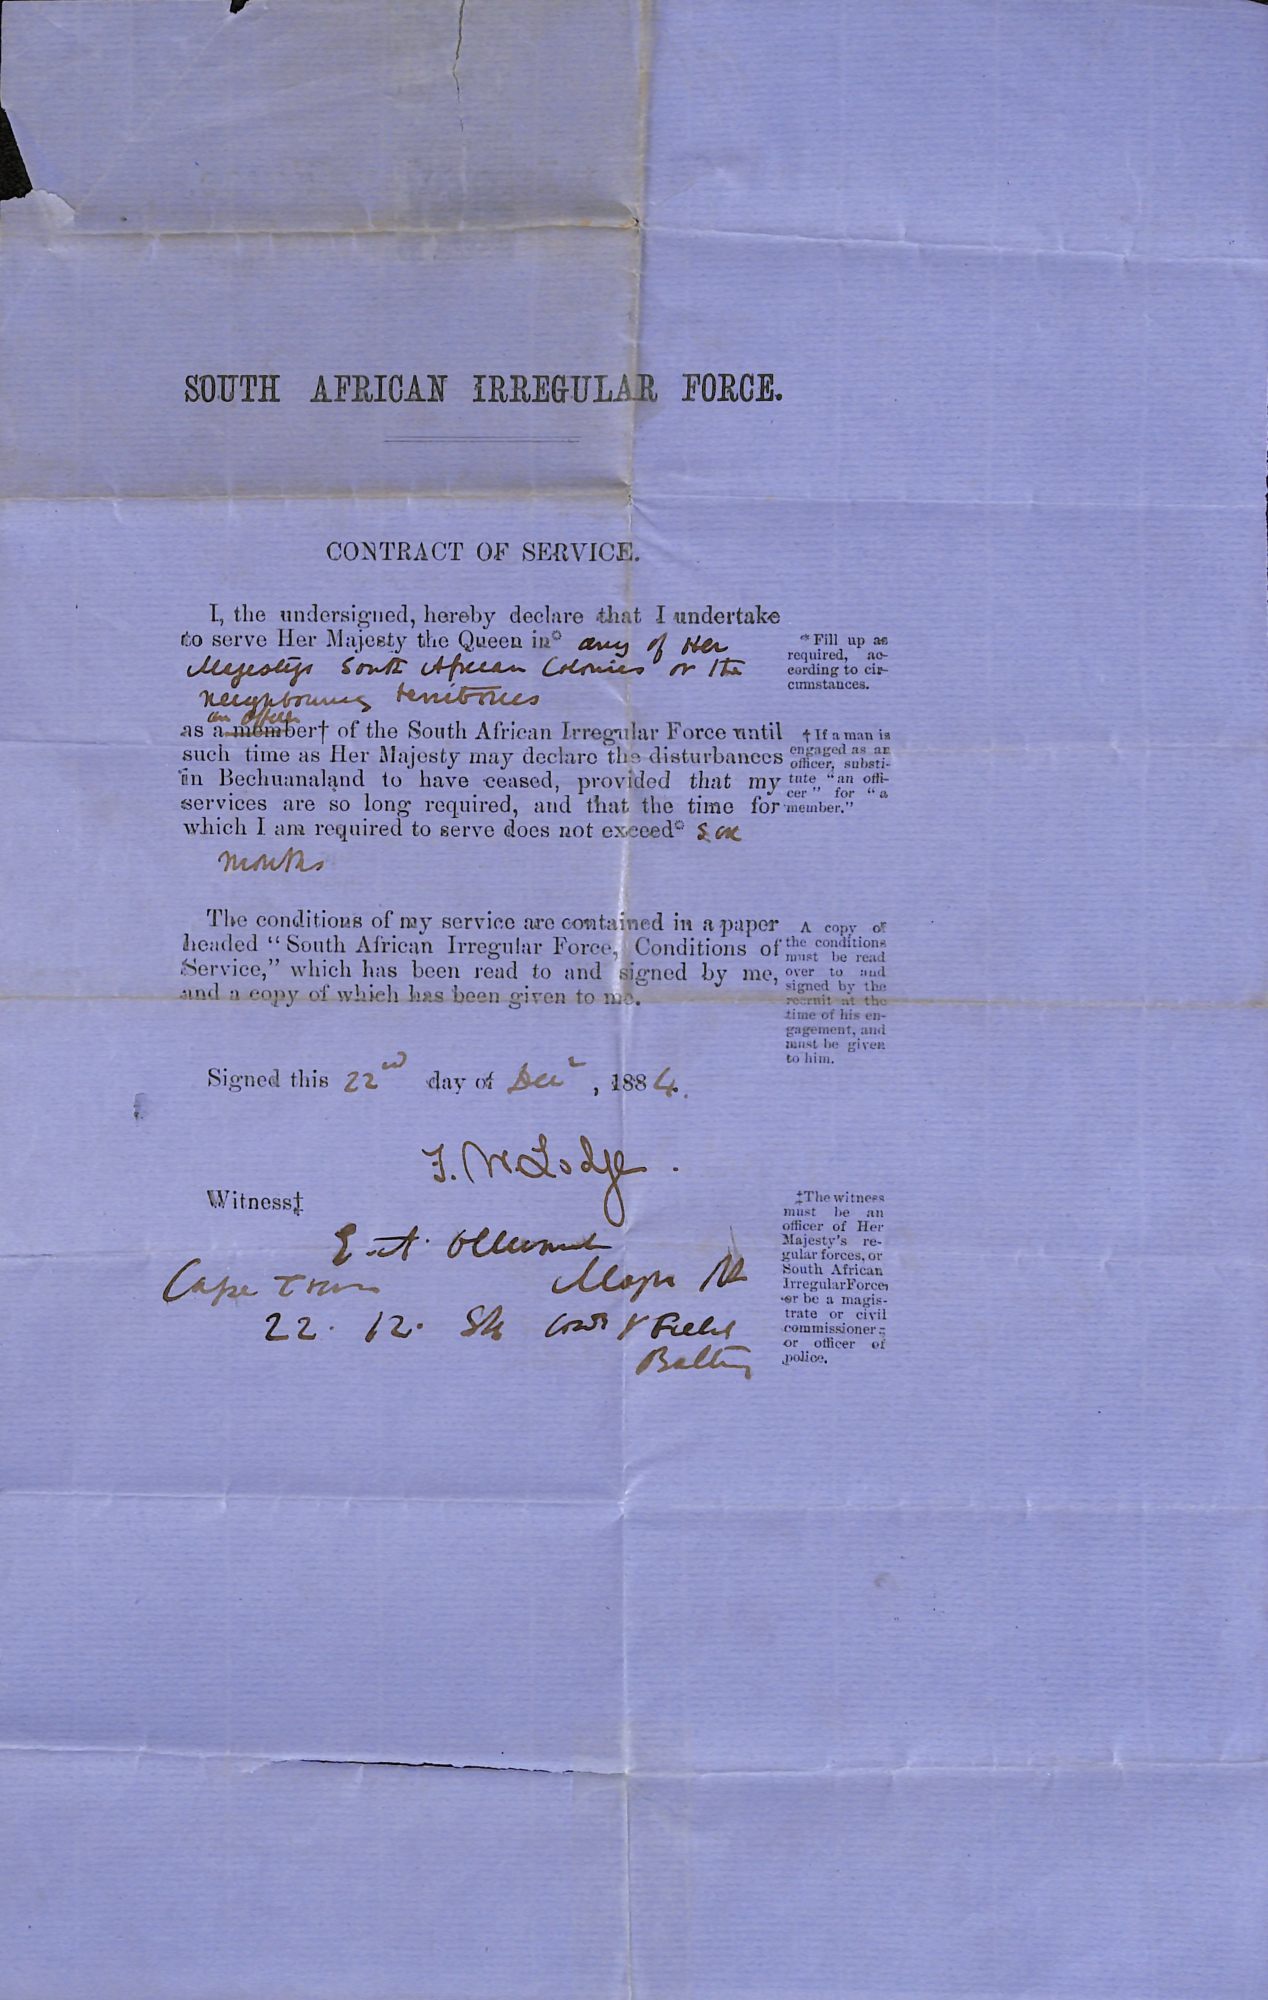 SOUTH AFRICAN IRREGULAR FORCE.
CONTRACT OF SERVICE.
I, the undersigned, hereby declare that I undertake
to serve Her Majesty the Queen in* any of Her
Majestys South African Colonies or the
neighbouring territories
an officer
as a member† of the South African Irregular Force until
such time as Her Majesty may declare the disturbances
in Bechuanaland to have ceased, provided that my
services are so long required, and that the time for
which I am required to serve does not exceed* six
months
*Fill up as
required, ac-
cording to cir-
cumstances.
† If a man is
engaged as an
officer, substi-
tute "an offi-
cer" for "a
member."
The conditions of my service are contained in a paper
headed "South African Irregular Force, Conditions of
Service," which has been read to and signed by me,
and a copy of which has been given to me.
A copy of
the conditions
must be read
over to and
signed by the
recruit at the
time of his en-
gagement, and
must be given
to him.
Signed this 22nd day of Decr, 1884.
F. W. Lodge.
Witness‡
E. A.
Cape Town Major RA
22. 12. 84 Comd Field
Battery
‡The witness
must be an
officer of Her
Majesty's re-
gular forces, or
South African
Irregular Force,
or be a magis-
trate or civil
commissioner;
or officer of
police.